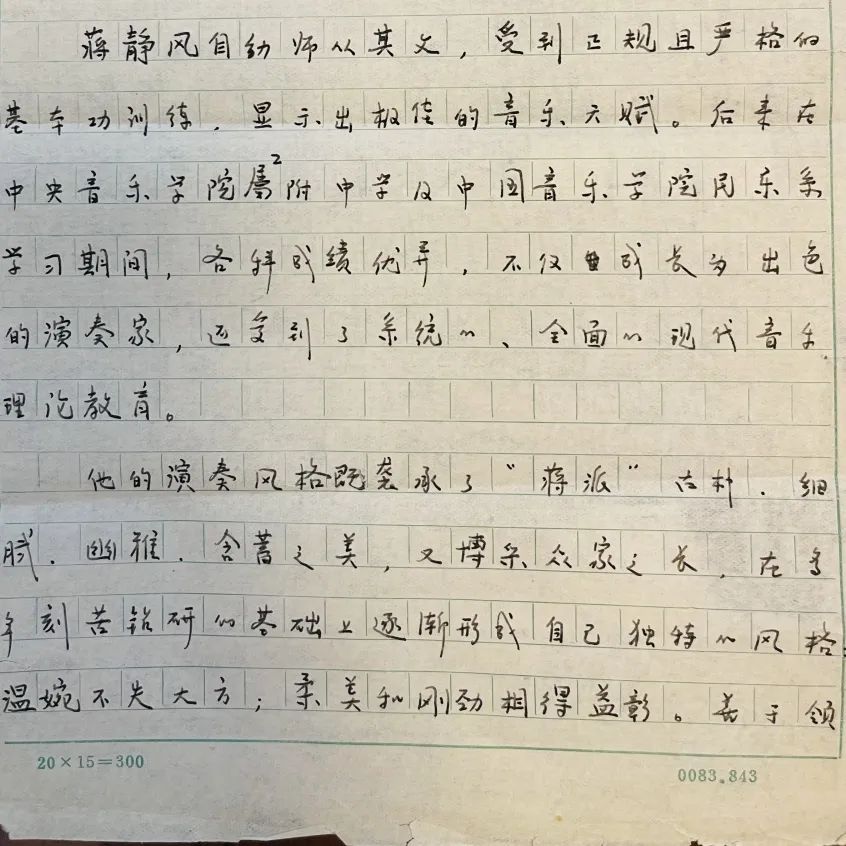 蒋静风自幼师从其父，受到正规且严格的
基本功训练，显示出极佳的音乐天赋。后来在
中央音乐学院属附中学及中国音乐学院民乐系
学习期间，各科成绩优异，不仅成长为出色
的演奏家，还受到了系统的、全面的现代音乐
理论教育。
他的演奏风格既袭承了“蒋派”古朴、细
腻、幽雅、含蓄之美，又博采众家之长，在多
年刻苦钻研的基础上逐渐形成自己独特的风格：
温婉不失大方；柔美和刚劲相得益彰。善于领
20×15=300
0083.843